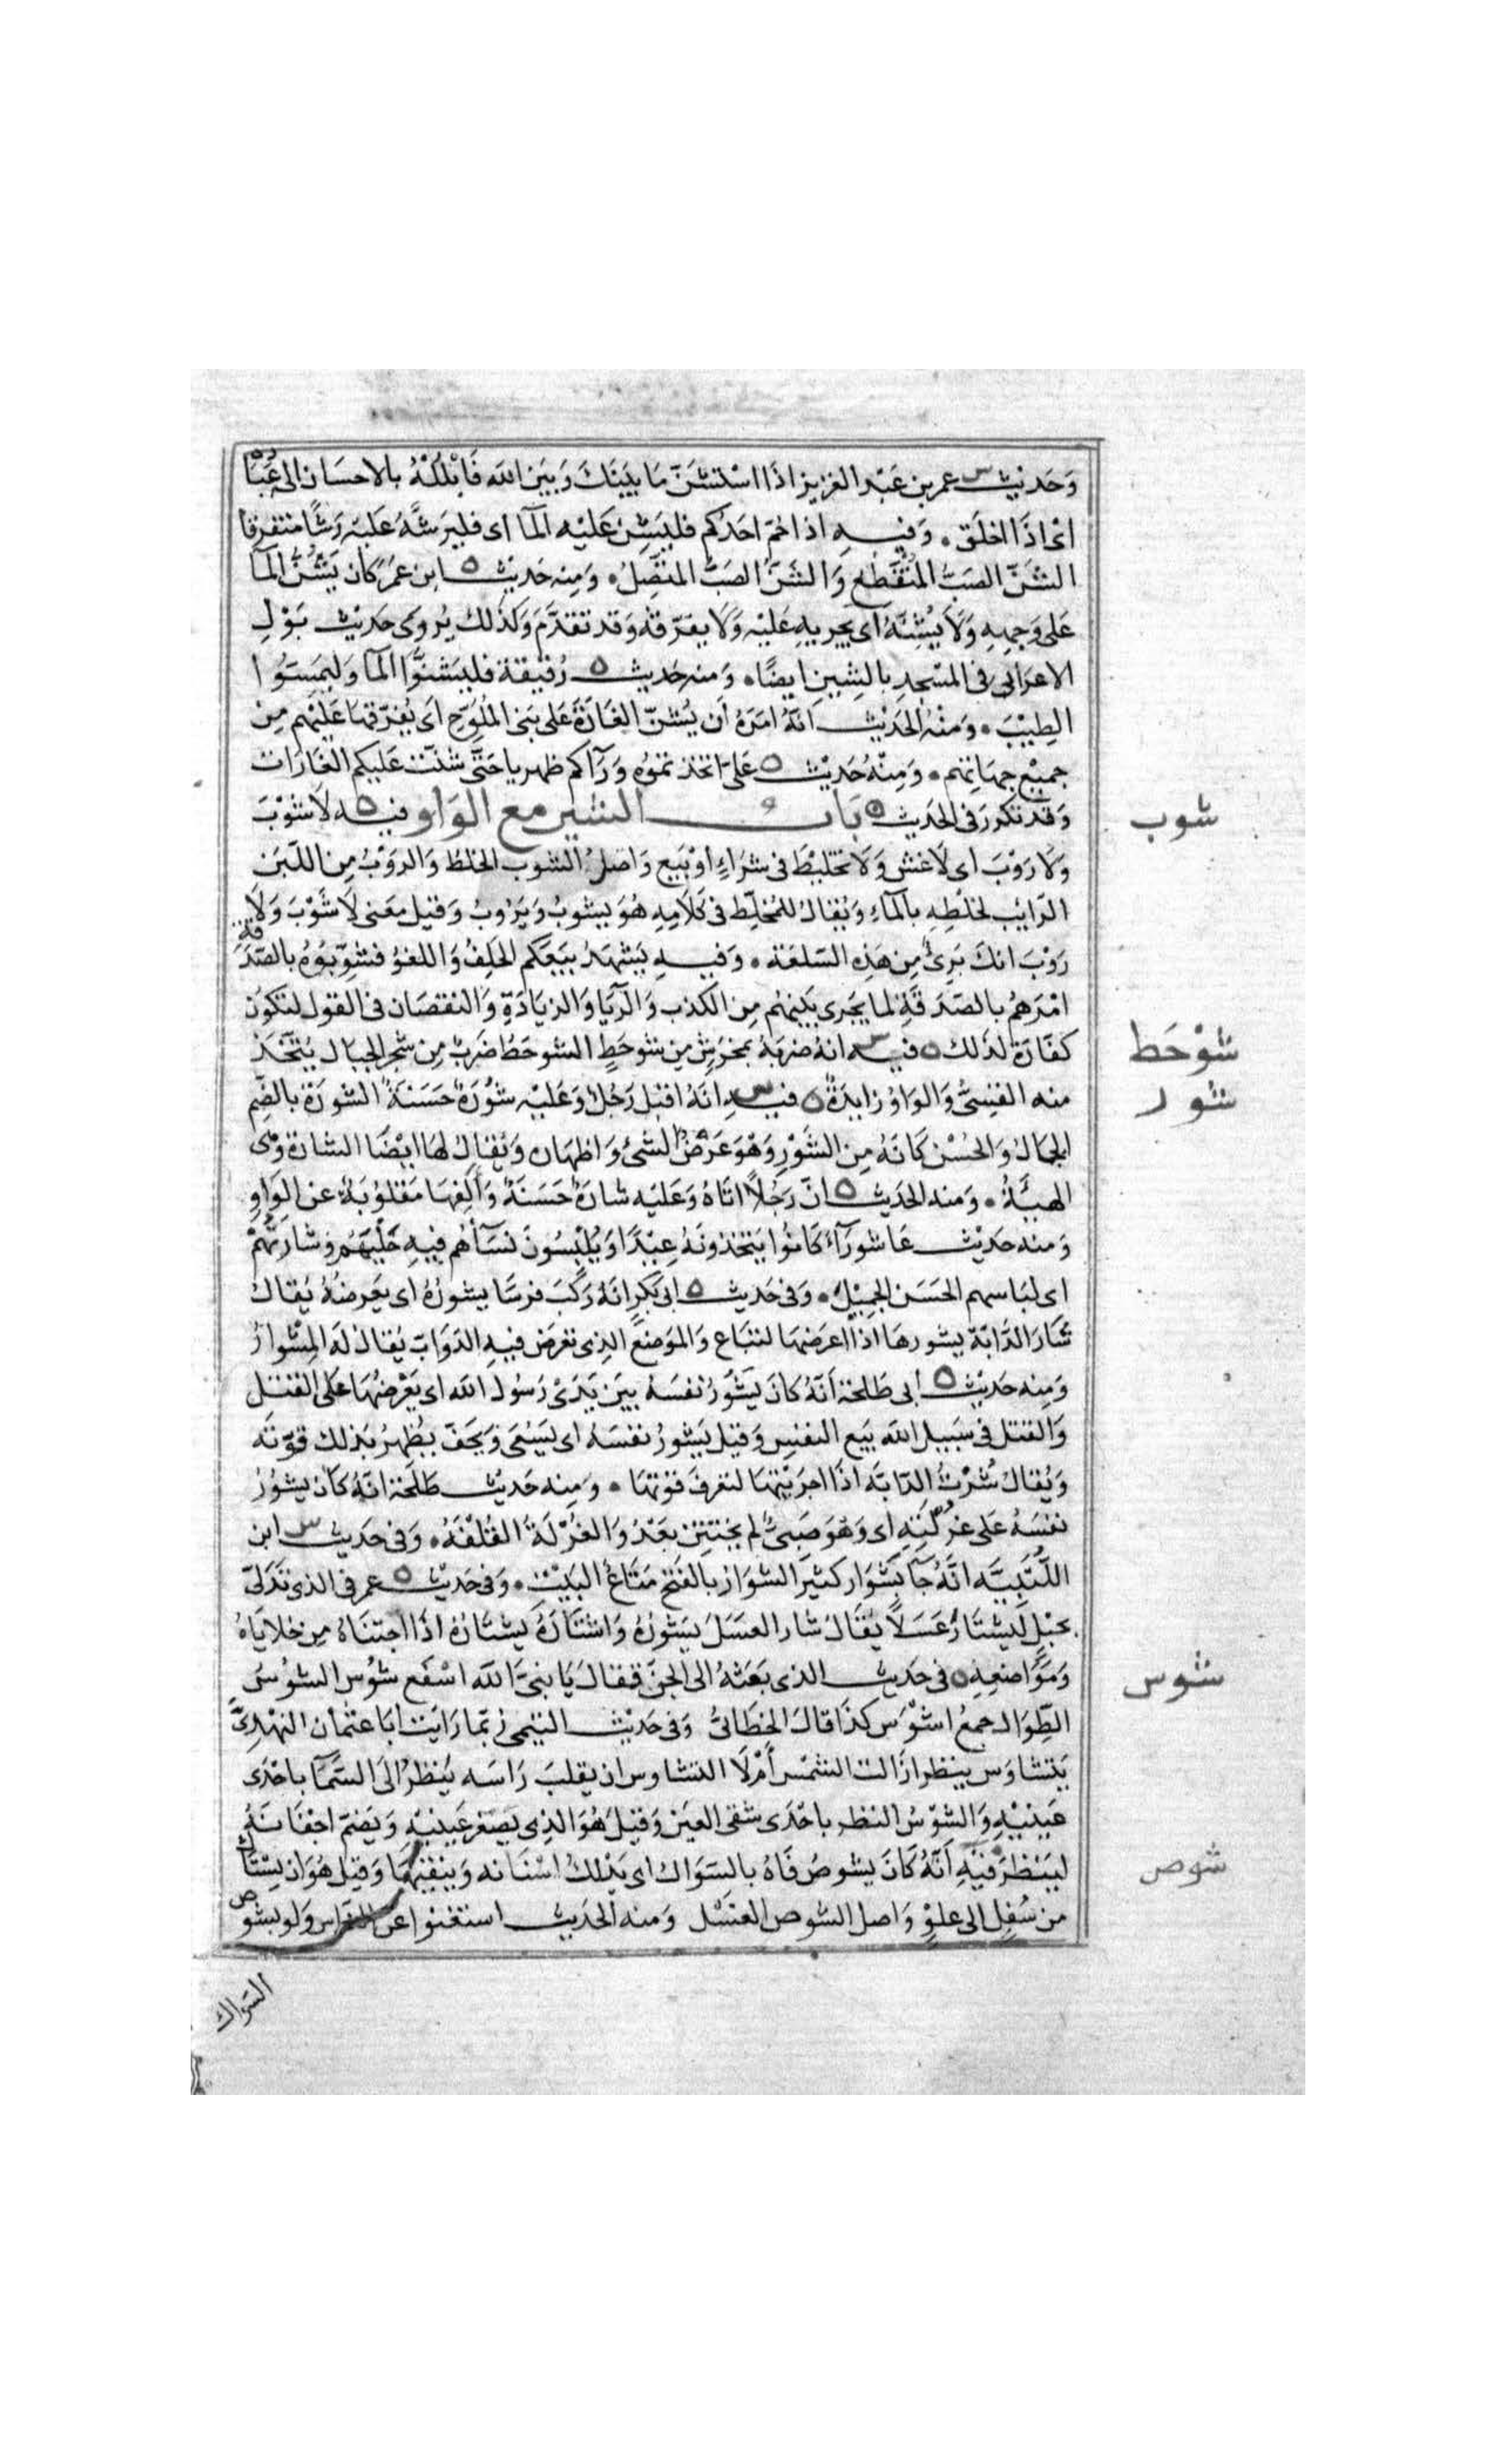 وَحَديث س عمر بن عَبْد العَزيز اذَا اسْتَشَنَّ مَا بَيْنَكَ وَبَيْنَ اللهِ فَابْلُلْهُ بالاحسَان الى عِبَادِه
اىْ اذَا اخلَق ۰ وَفيــهِ اذا حُمّ احَدُكم فليَشِنّ عَليْه المآ اى فليرُشَّهُ عَليْه رَشًّا متفرقا
الشَنّ الصَبُّ المُنْقَطع وَالسَنّ الصَبُّ المتّصِلُ ۰ وَمِنه حَديث ٥ ابن عمَر كَان يَسُنُّ المآ
عَلى وَجهِهِ وَلَا يَشُنّهُ اى يجريهِ عَليْه وَلَا يفرّقهُ وَقد تقدّمَ وَكذلك يُروى حَديث بَوْلِ
الاعرَابى فى المسْجد بالشِين ايضًا ۰ وَمنه حَديث ٥ رُقيقة فليَشنُّوا المآ وَليمَسّوُا
الطِيْبَ ۰ وَمنْهُ الحَدِيْث انَّهُ امَرَهُ اَن يَشنّ الغَارَةَ عَلى بَنى المُلوِّح اى يُفرّقهَا عَليْهم مِن
جميْع جهَاتهم ۰ وَمِنْهُ حَديث ٥ عَلىّ اتخذتموُه وَرَآكم ظهريا حَتَّى شنّت عَليكم الغَارَات
وَقد تكرر فى الحَديث ٥ بَابُ الشين مع الوَاو فيــه ٥ لَا شَوْبَ
وَلَا رَوْبَ اى لَا غش وَلَا تخليْطَ فى شرَاءٍ اوْ بَيع وَاصلُ الشوب الخلطُ وَالروْبُ مِن اللّبَن
الرَايب لخلطِهِ بالمآءِ وَيُقالُ للمُخلِّط فى كَلَامِهِ هُوَ يَشوبُ وَيَرُوبُ وَقيل معنى لَا شَوْبَ وَلَا
رَوْبَ انكَ بَرِئ مِن هَذِه السّلعَة ۰ وَفيــهِ يَشهَدُ بيعَكم الحَلِفُ وَاللغوُ فشوّبُوهُ بالصّدَقة
امَرَهمُ بالصّدَقةِ لما يَجرى بَيْنهُم مِن الكذب وَالرّبَا وَالزيَادَةِ وَالنقصَان فى القول لتكوُن
كفّارَة لذلك ٥ فيــه س انهُ ضربَهُ بمخرَش مِن شوحَطٍ الشوحَطُ ضَربٌ مِن شجَر الجبَال يُتّخَذ
منه القسِىُّ وَالوَاوُ زايدَةٌ ٥ فيــهِ س انّهُ اقبَل رَجُلٌ وَعَليْه شُورَةٌ حَسَنَةٌ الشورَة بالضَّم
الجمَالُ وَالحُسْن كَانَهُ مِن الشَّوْرِ وَهْوَ عَرْضُ الشئ وَاظهَاره وَيُقالُ لهَا ايْضًا الشارَة وَهى
الهيئَةُ ۰ وَمنه الحَديث ٥ انّ رَجُلاً اتَاهُ وَعَليْه شارَةٌ حَسَنَةٌ وَألِفهَا مَقلوُبَةٌ عن الوَاوِ
وَمنه حَديث عَاشورَآء كَانوُا يَتخذونَهُ عِيْدًا وَيُلْبِسُونَ نسَآهُم فيهِ حُلِيَّهُم وَشَارَتَهُمْ
اى لبَاسهم الحَسَن الجَميْلُ ۰ وَفى حَديث ٥ ابى بَكرٍ انهُ رَكَبَ فرسًا يَشورُهُ اى يَعرضُهُ يُقالُ
شَارَ الدّابّة يشورهَا اذَا عرَضهَا لتبَاع وَالموَضعُ الذِى تعرَض فيهِ الدّوَابّ يُقالُ لهُ المِشْوارُ
وَمِنه حَديث ٥ ابى طَلحَة اَنّهُ كانَ يَشُورُ نفسَهُ بَينَ يَدَىْ رَسُولِ اللهِ اى يَعْرِضُهَا عَلى القتل
وَالقتل فى سَبيل اللهَ بَيع النفس وَقيلَ يَشورُ نفسَهُ اى يَسْعَى وَيخفّ يُظهِرُ بذلك قوّتَه
وَيُقالُ شُرْتُ الدّابَّة اذَا اجرَيْتهَا لتعرفَ قوّتهَا ۰ وَمِنه حَديث طَلحَة انّهُ كان يشوُرُ
نفسَهُ عَلى غرْلَتِهِ اى وَهْوَ صَبىٌّ لم يَختتِن بَعْدُ وَالغُرْلَةُ القُلْفَةُ ۰ وَفى حَديث س ابن
اللُّتْبِيَّه انَّهُ جَآ بِشَوَار كثيرَ الشوَار بالفَتح مَتَاعُ البَيْت ۰ وَفى حَديث ٥ عمر فى الذى تَدَلىّ
بحَبْلٍ لِيَشتَارَ عَسَلًا يُقَالُ شارَ العسَلَ يشورُهُ وَاشتَارَهُ يشتَارُهُ اذَا اجتنَاهُ مِن خلايَاهُ
وَمَوَاضعِهِ ٥ فى حَديث الذى بَعَثهُ الى الجنّ فقالَ يَا نبىَّ اللهَ اسْفَع شُوس الشوُسُ
الطِّوَال جمعُ اشْوَس كذَا قالَ الخطّابىُّ وَفى حَديْث التيْمى رُبّما رَايَت ابَا عثمان النَهْدِىَّ
يَتشاوَس ينظر ازَالت الشمْس أمْ لَا التشاوس ان يقلبَ رَاسَه يَنظرُ الى السَّمَآ باحْدَى
عَينيْهِ وَالشّوَسُ النظر باحْدَى شقى العيَن وَقيلَ هُوَ الذِى يصَغر عَينيْهِ وَيَضمّ اجفَانَهُ
ليَنظرَ فيْهِ انّهُ كَانَ يشوصُ فَاهُ بالسّوَاك اى يَدْلكُ اسْنَانه وَينقيهَا وَقيل هُوَ ان يَسْتَاك
من سُفلِ الى علوٍ وَاصل الشوص الغسْل وَمنه الحَديث استغنوا عن الناس وَلو بشوص
السّواك
شوب
شوْحَط
شور
شوس
شوص